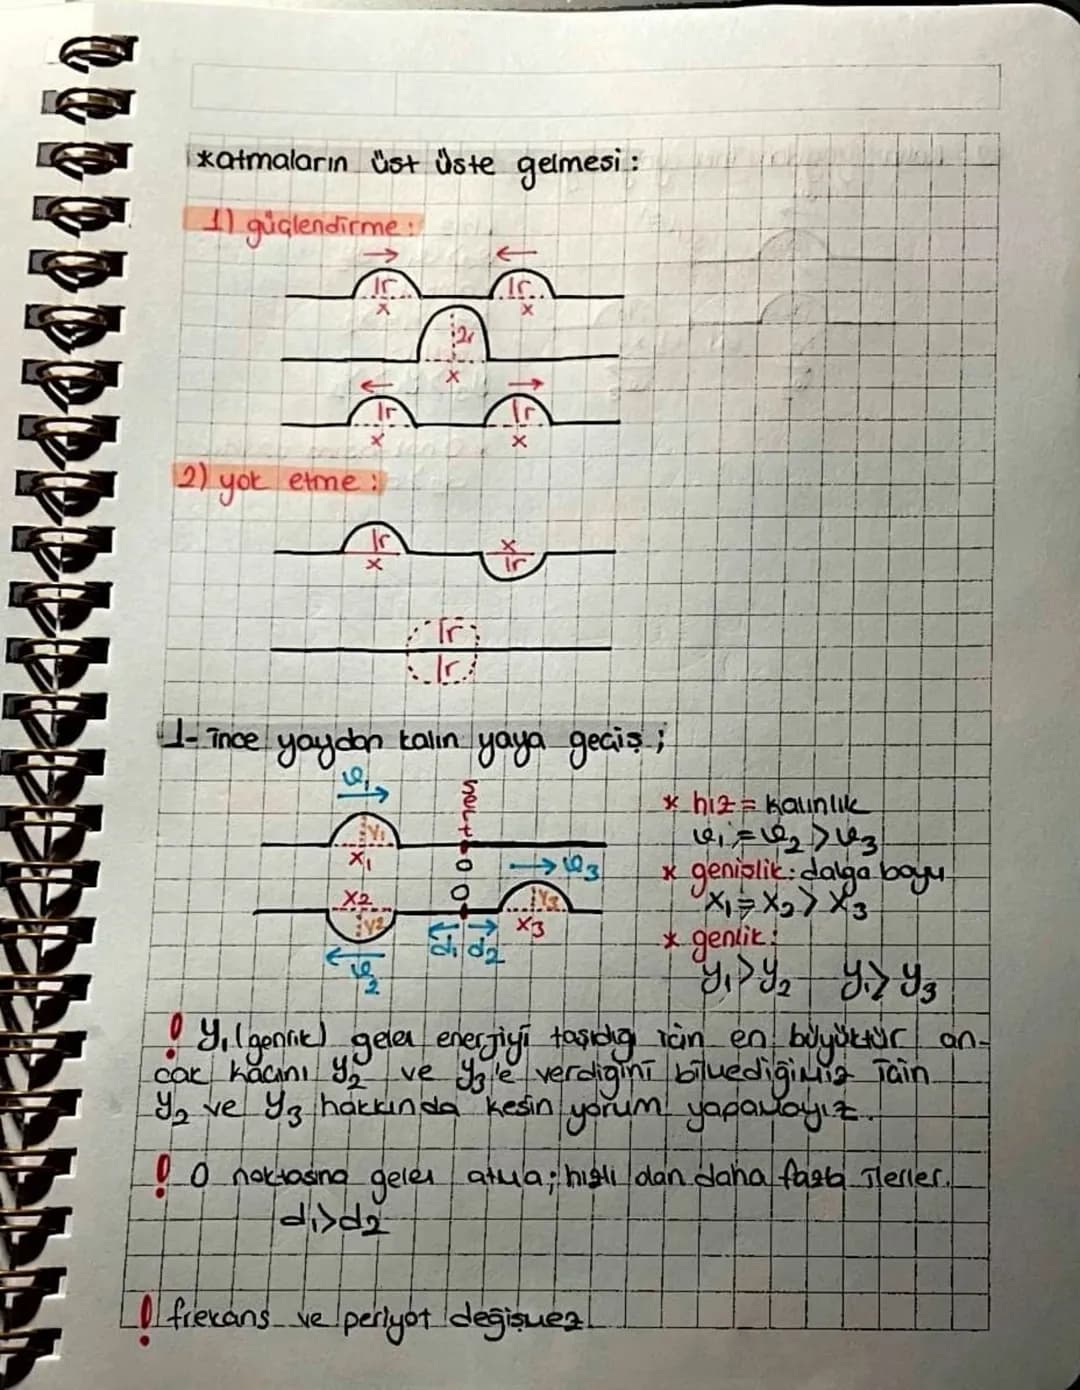 *atmaların üst üste gelmesi:
1) güçlendirme:
→ ←
1r 1r
x x
2r
x
← →
1r 1r
x x
2) yok etme:
1r x
x 1r
1r
1r
1- ince yaydan kalın yaya geçiş;
ϑ₁ →
sert
y₁
x₁ O
→ ϑ₃
x₂ O y₃
y₂ x₃
← → d₁ d₂
← ϑ₂
* hız = kalınlık
ϑ₁ = ϑ₂ > ϑ₃
* genişlik: dalga boyu
x₁ = x₂ > x₃
* genlik:
y₁>y₂ y₁>y₃
! y₁(genlik) gelen enerjiyi taşıdığı için en büyüktür an-
cak kaçını y₂ ve y₃'e verdiğini bilmediğimiz için
y₂ ve y₃ hakkında kesin yorum yapamayız.
! O noktasına gelen atma; hızlı olan daha fazla ilerler.
d₁>d₂
! frekans ve periyot değişmez